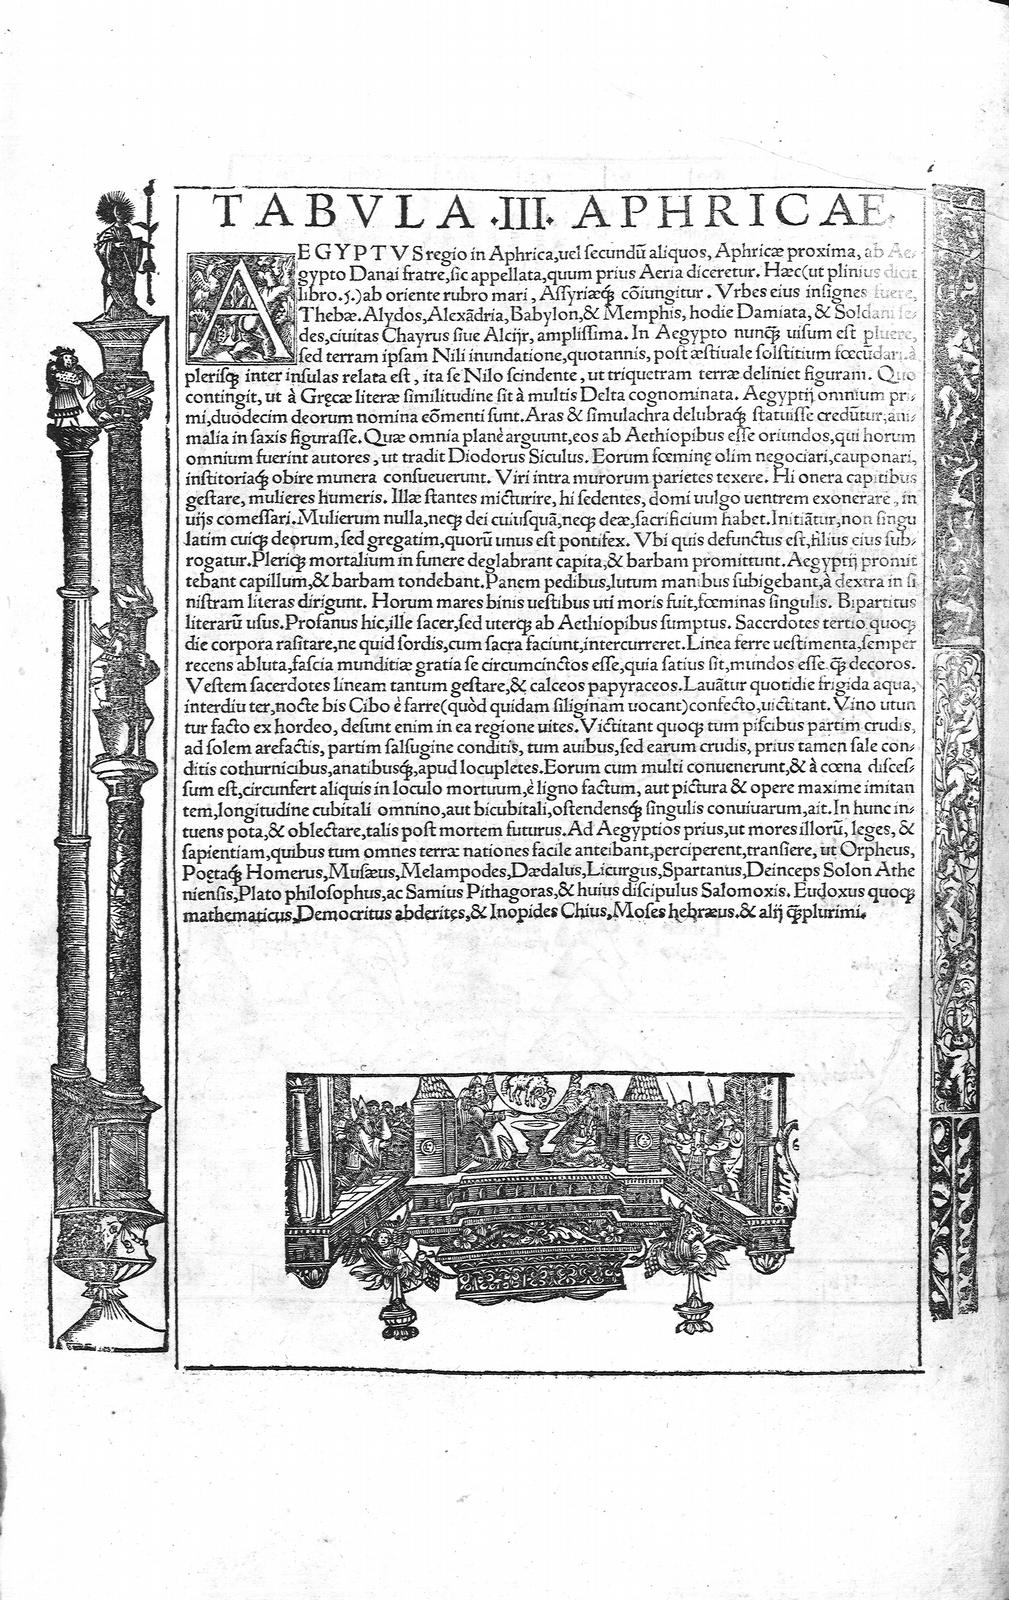 TABVLA .III. APHRICAE.
AEGYPTVS regio in Aphrica,uel ſecundũ aliquos, Aphricæ proxima, ab Ae⸗
gypto Danai fratre,ſic appellata,quum prius Aeria diceretur. Hæc(ut plinius dicit
libro.5.)ab oriente rubro mari, Aſſyriæꝗ; cõiungitur. Vrbes eius inſignes fuere,
Thebæ. Alydos,Alexãdria,Babylon,& Memphis, hodie Damiata, & Soldani ſe⸗
des,ciuitas Chayrus ſiue Alcijr, ampliſſima. In Aegypto nunꝗ̃ uiſum eſt pluere,
ſed terram ipſam Nili inundatione,quotannis, poſt æſtiuale ſolſtitium fœcũdari.à
pleriſꝗ; inter inſulas relata eſt, ita ſe Nilo ſcindente, ut triquetram terræ deliniet figuram. Quo
contingit, ut à Gręcæ literæ ſimilitudine ſit à multis Delta cognominata. Aegyptij omnium pri⸗
mi,duodecim deorum nomina cõmenti ſunt. Aras & ſimulachra delubraꝗ; ſtatuiſſe credũtur,ani⸗
malia in ſaxis figuraſſe. Quæ omnia planè arguunt,eos ab Aethiopibus eſſe oriundos,qui horum
omnium fuerint autores, ut tradit Diodorus Siculus. Eorum fœminę olim negociari,cauponari,
inſtitoriaꝗ; obire munera conſueuerunt. Viri intra murorum parietes texere. Hi onera capitibus
geſtare, mulieres humeris. Illæ ſtantes micturire, hi ſedentes, domi uulgo uentrem exonerare, in
uijs comeſſari. Mulierum nulla,neꝗ; dei cuiuſquã,neꝗ; deæ,ſacrificium habet. Initiãtur,non ſingu
latim cuiꝗ; deorum, ſed gregatim,quorũ unus eſt pontifex. Vbi quis defunctus eſt,filius eius ſub⸗
rogatur. Pleriꝗ; mortalium in funere deglabrant capita,& barbam promittunt. Aegyptij promit
tebant capillum,& barbam tondebant. Panem pedibus,lutum manibus ſubigebant,à dextra in ſi
niſtram literas dirigunt. Horum mares binis ueſtibus uti moris fuit,fœminas ſingulis. Bipartitus
literarũ uſus. Profanus hic,ille ſacer,ſed uterꝗ; ab Aethiopibus ſumptus. Sacerdotes tertio quoꝗ;
die corpora raſitare,ne quid ſordis,cum ſacra faciunt,intercurreret. Linea ferre ueſtimenta,ſemper
recens abluta,faſcia munditiæ gratia ſe circumcinctos eſſe,quia ſatius ſit,mundos eſſe ꝗ̃ decoros.
Veſtem ſacerdotes lineam tantum geſtare,& calceos papyraceos. Lauãtur quotidie frigida aqua,
interdiu ter,nocte bis Cibo è farre(quòd quidam ſiliginam uocant)confecto,uictitant. Vino utun
tur facto ex hordeo, deſunt enim in ea regione uites. Victitant quoꝗ; tum piſcibus partim crudis,
ad ſolem arefactis, partim ſalſugine conditis, tum auibus,ſed earum crudis, prius tamen ſale con⸗
ditis cothurnicibus,anatibuſꝗ;,apud locupletes. Eorum cum multi conuenerunt,& à cœna diſceſ⸗
ſum eſt,circunfert aliquis in loculo mortuum,è ligno factum, aut pictura & opere maxime imitan
tem,longitudine cubitali omnino,aut bicubitali,oſtendenſꝗ; ſingulis conuiuarum,ait. In hunc in⸗
tuens pota,& oblectare,talis poſt mortem futurus. Ad Aegyptios prius,ut mores illorũ, leges, &
ſapientiam,quibus tum omnes terræ nationes facile anteibant,perciperent,tranſiere, ut Orpheus,
Poetaꝗ; Homerus,Muſæus,Melampodes,Dædalus,Licurgus,Spartanus,Deinceps Solon Athe
nienſis,Plato philoſophus,ac Samius Pithagoras,& huius diſcipulus Salomoxis. Eudoxus quoꝗ;
mathematicus,Democritus abderites,& Inopides Chius,Moſes hebræus.& alij ꝗ̃plurimi.